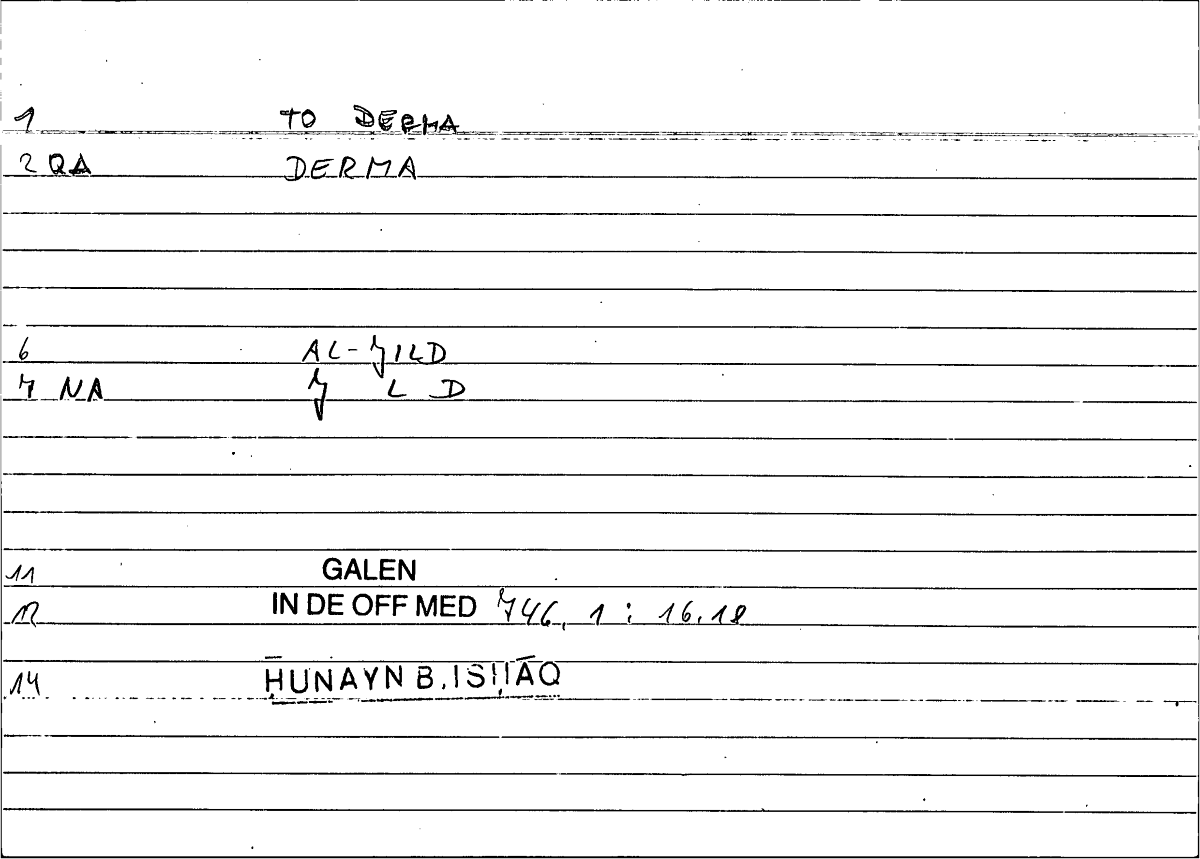 1 TO DERMA
2 QA DERMA
6 AL-ǦILD
7 NA Ǧ L D
11 GALEN
12 IN DE OFF MED 746, 1 : 16.18
14 ḤUNAYN B. ISḤĀQ